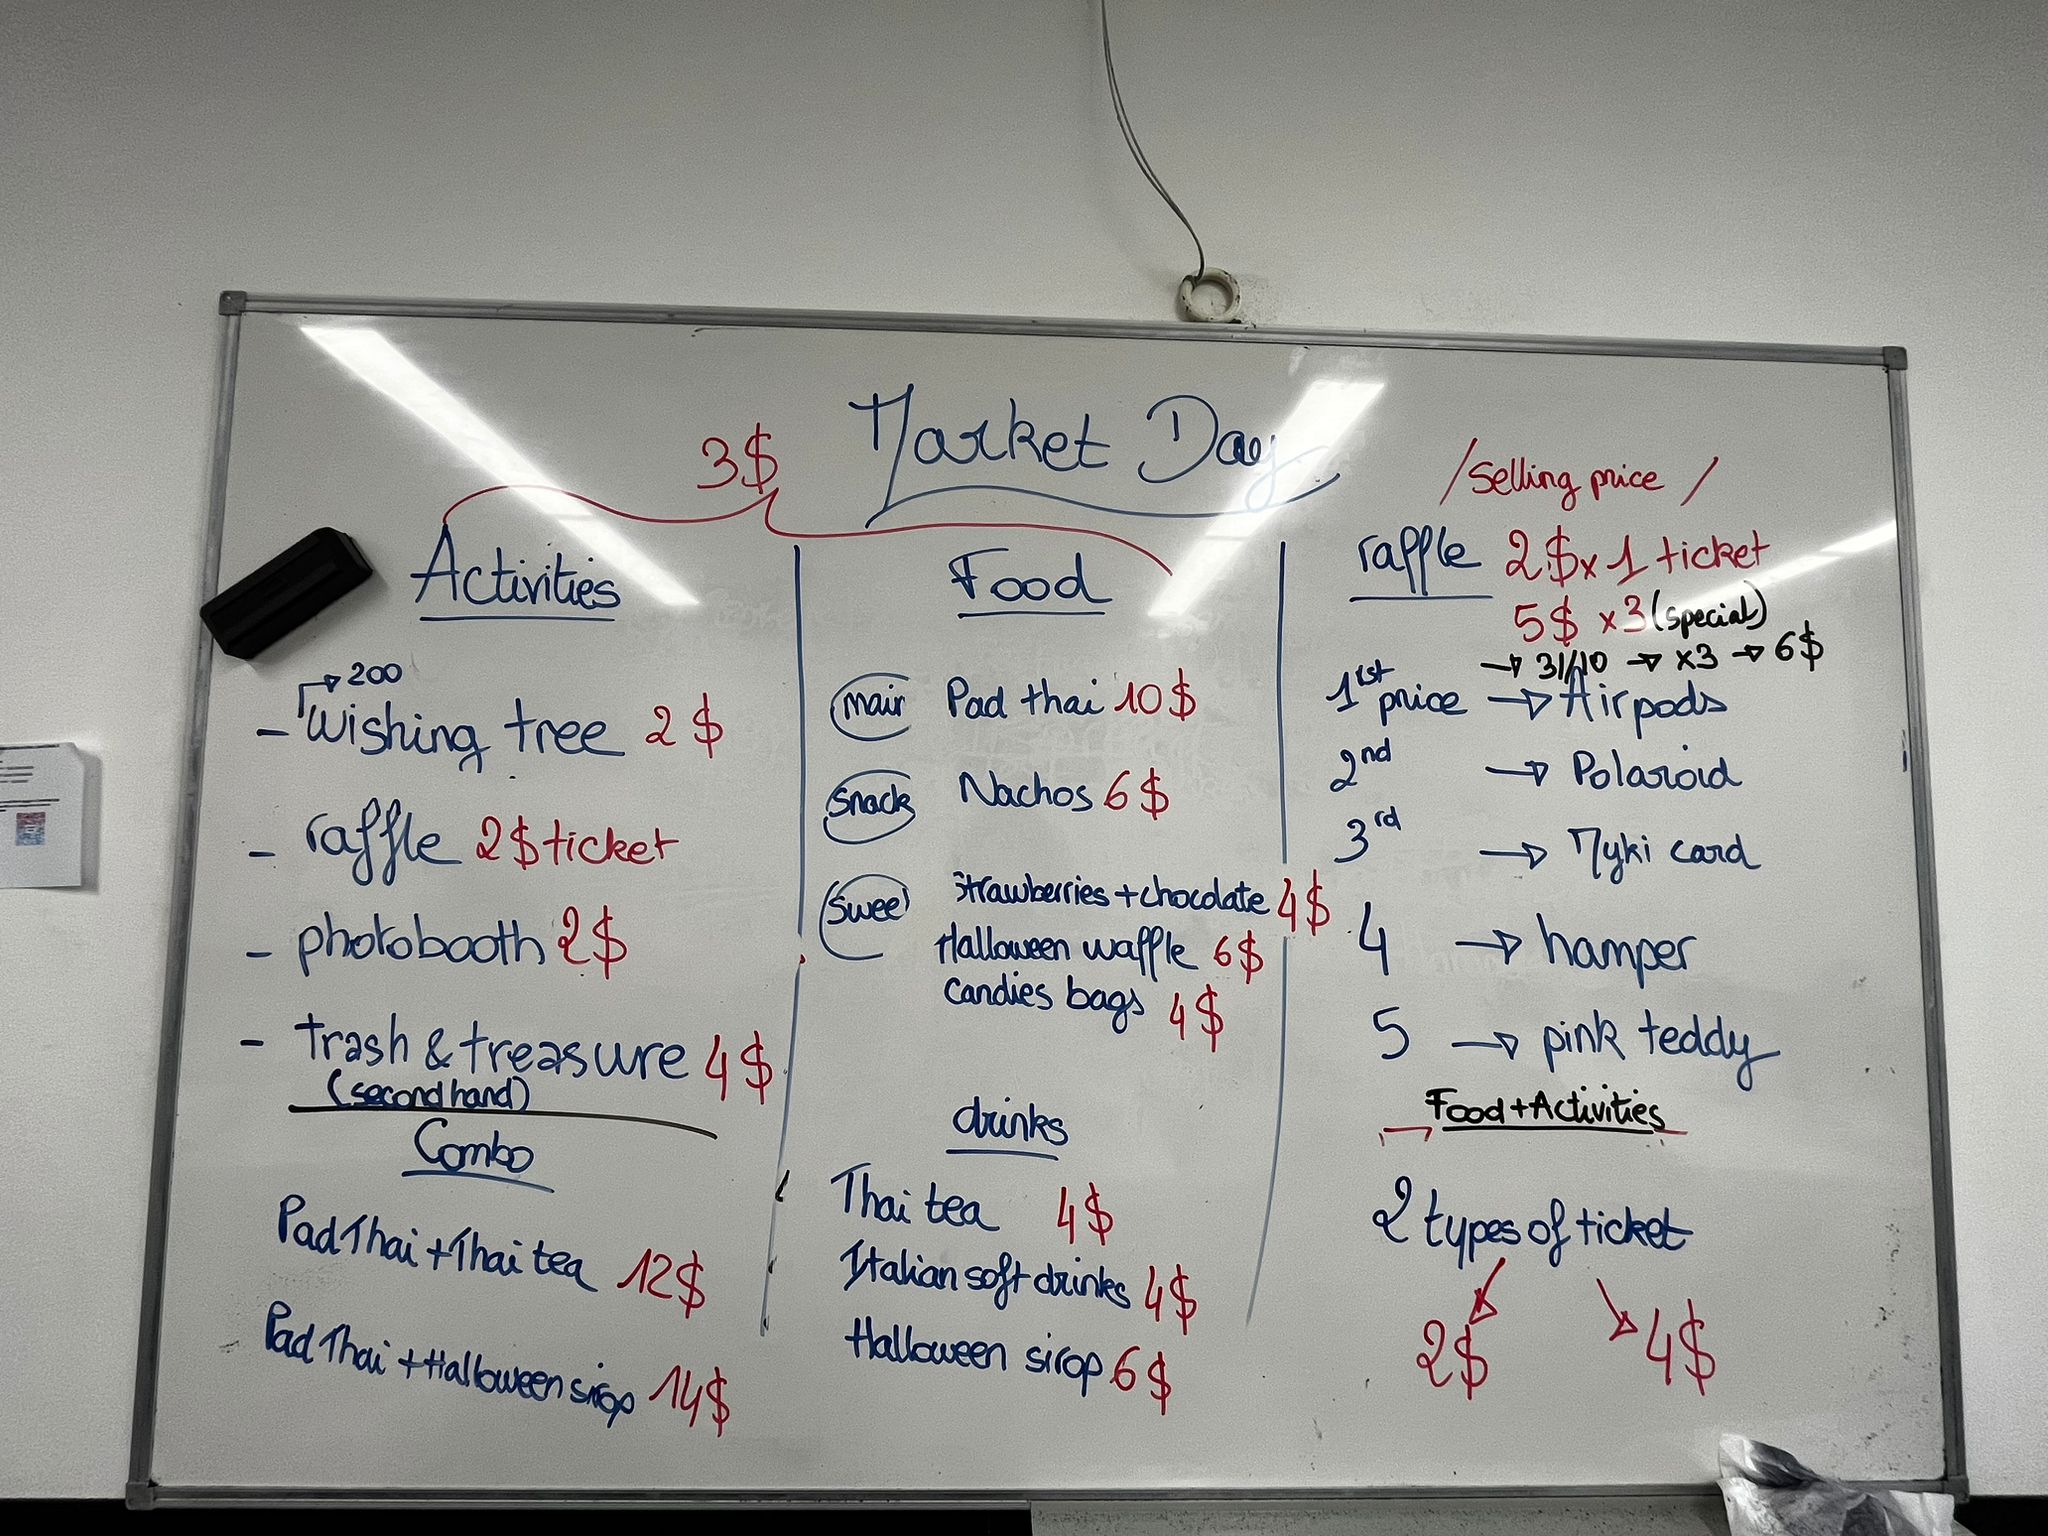 Market Day
3$
Activities
→ 200
- wishing tree 2$
- raffle 2$ ticket
- photobooth 2$
- trash & treasure 4$
(second hand)
Combo
Pad Thai + Thai tea 12$
Pad Thai + Halloween sirop 14$
Food
main Pad thai 10$
snack Nachos 6$
swee Strawberries + chocolate 4$
Halloween waffle 6$
Candies bags 4$
drinks
Thai tea 4$
Italian soft drinks 4$
Halloween sirop 6$
/ Selling price /
raffle 2$ x 1 ticket
5$ x3 (special)
→ 31/10 → x3 → 6$
1rst price → Airpods
2nd → Polaroid
3rd → Myki card
4 → hamper
5 → pink teddy
Food + Activities
2 types of ticket
2$ 4$